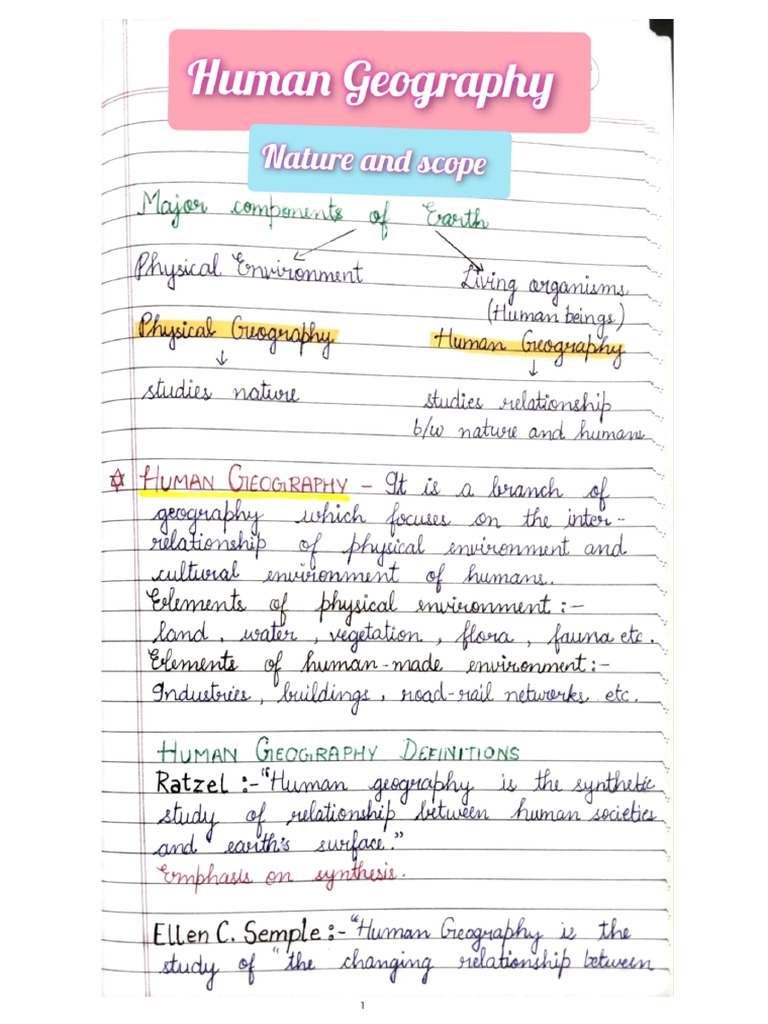 Human Geography
Nature and scope
Major components of Earth
Physical Environment
Living organisms
(Human beings)
Physical Geography
Human Geography
studies nature
studies relationship
b/w nature and humans
HUMAN GEOGRAPHY – It is a branch of
geography which focuses on the inter-
relationship of physical environment and
cultural environment of humans.
Elements of physical environment :-
land, water, vegetation, flora, fauna etc.
Elements of human-made environment:-
Industries, buildings, road-rail networks etc.
HUMAN GEOGRAPHY DEFINITIONS
Ratzel :- "Human geography is the synthetic
study of relationship between human societies
and earth's surface."
Emphasis on synthesis.
Ellen C. Semple :- "Human Geography is the
study of "the changing relationship between
1